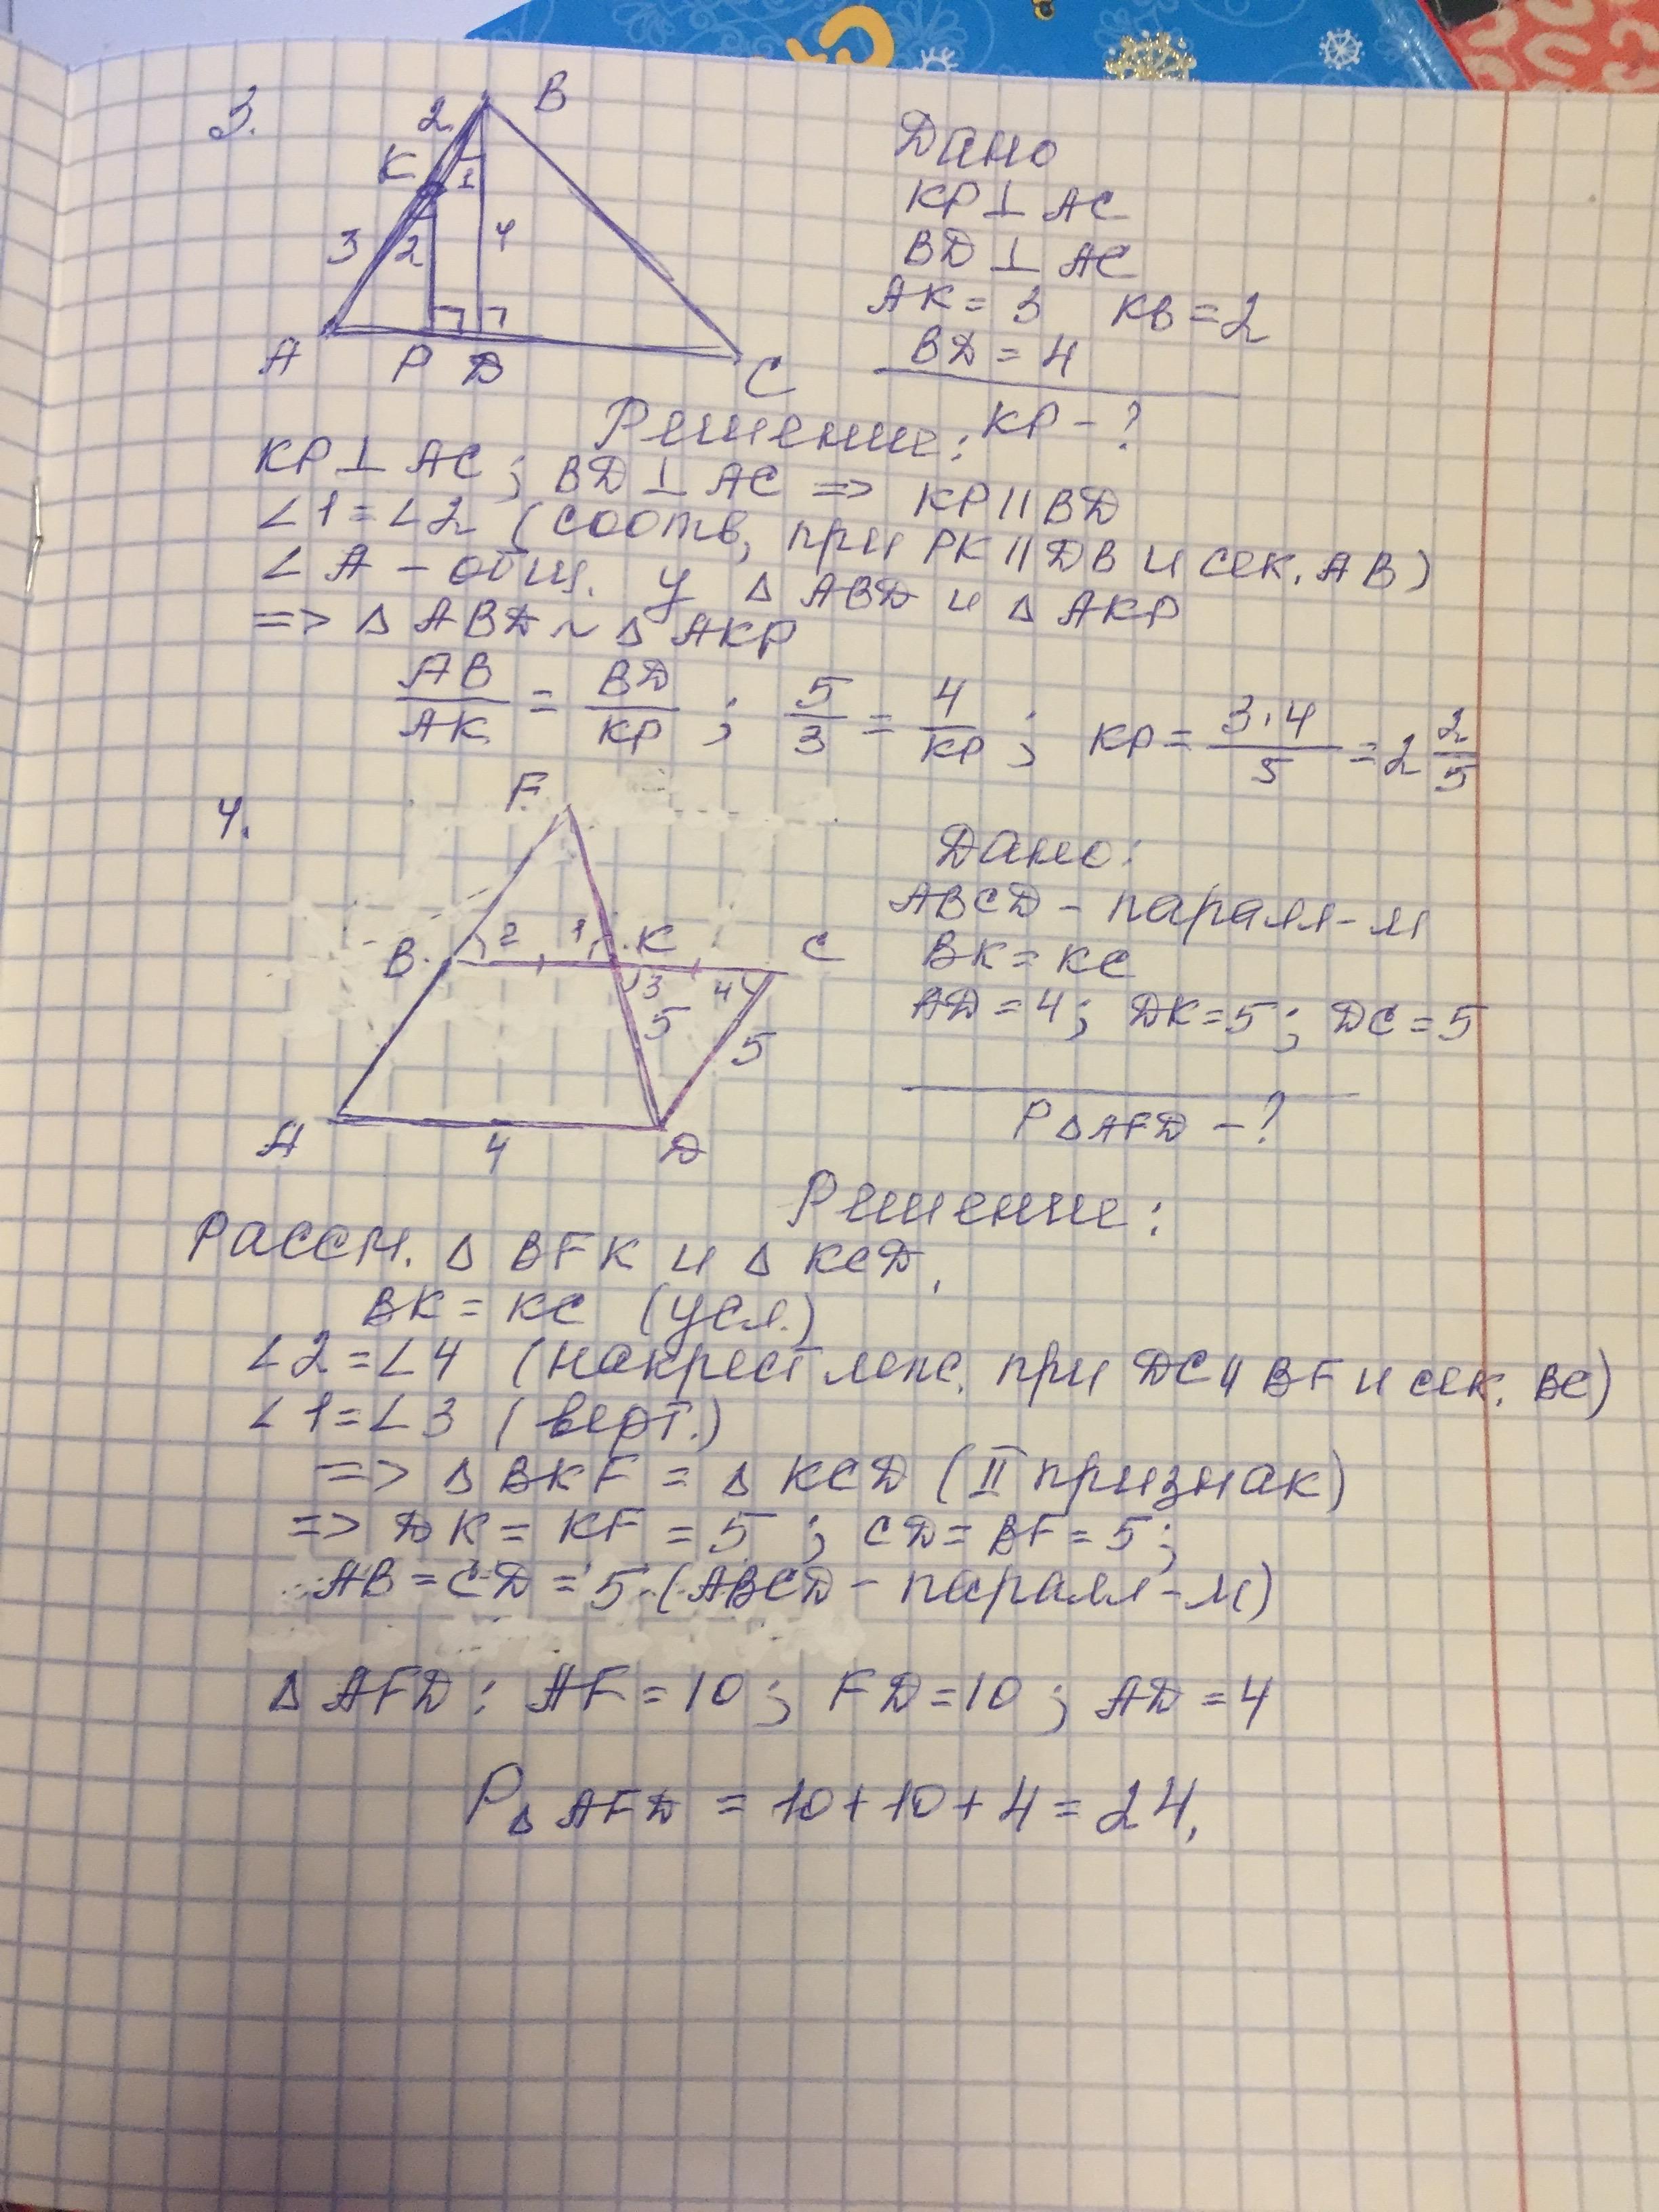 3.
B
2
K
1
3
2
4
A
P
D
C
Дано
KP ⊥ AC
BD ⊥ AC
AK = 3 KB = 2
BD = 4
KP - ?
Решение:
KP ⊥ AC; BD ⊥ AC => KP || BD
∠1 = ∠2 (соотв, при PK || DB и сек. AB)
∠A - общ. у Δ ABD и Δ AKP
=> Δ ABD ~ Δ AKP
AB/AK = BD/KP ; 5/3 = 4/KP ; KP = 3·4/5 = 2 2/5
4.
F
B 2 1 K C
3 4
5
5
A
4
D
Дано:
ABCD - паралл-м
BK = KC
AD = 4; DK = 5; DC = 5
PΔAFD - ?
Решение:
Рассм. Δ BFK и Δ KCD,
BK = KC (усл.)
∠2 = ∠4 (накрест леж. при DC || BF и сек. BC)
∠1 = ∠3 (верт.)
=> Δ BKF = Δ KCD (II признак)
=> DK = KF = 5 ; CD = BF = 5;
AB = CD = 5 (ABCD - паралл-м)
Δ AFD : AF = 10 ; FD = 10 ; AD = 4
PΔ AFD = 10 + 10 + 4 = 24,